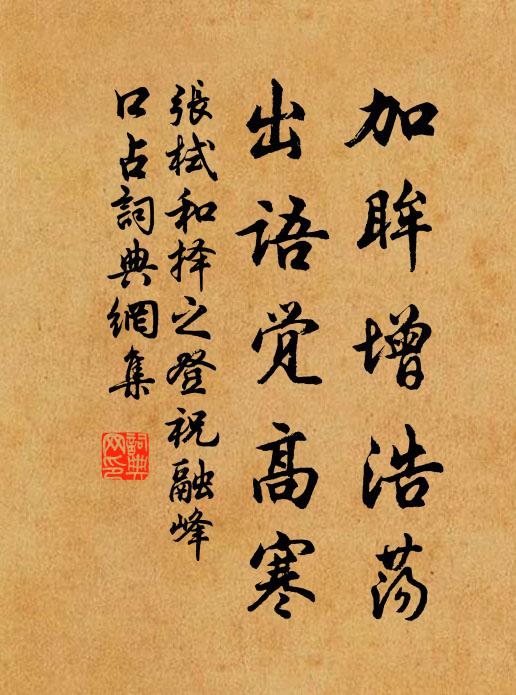 加眸增浩荡
出语觉高寒
張栻和择之登祝融峰
口占詞典網集
詞典
网印